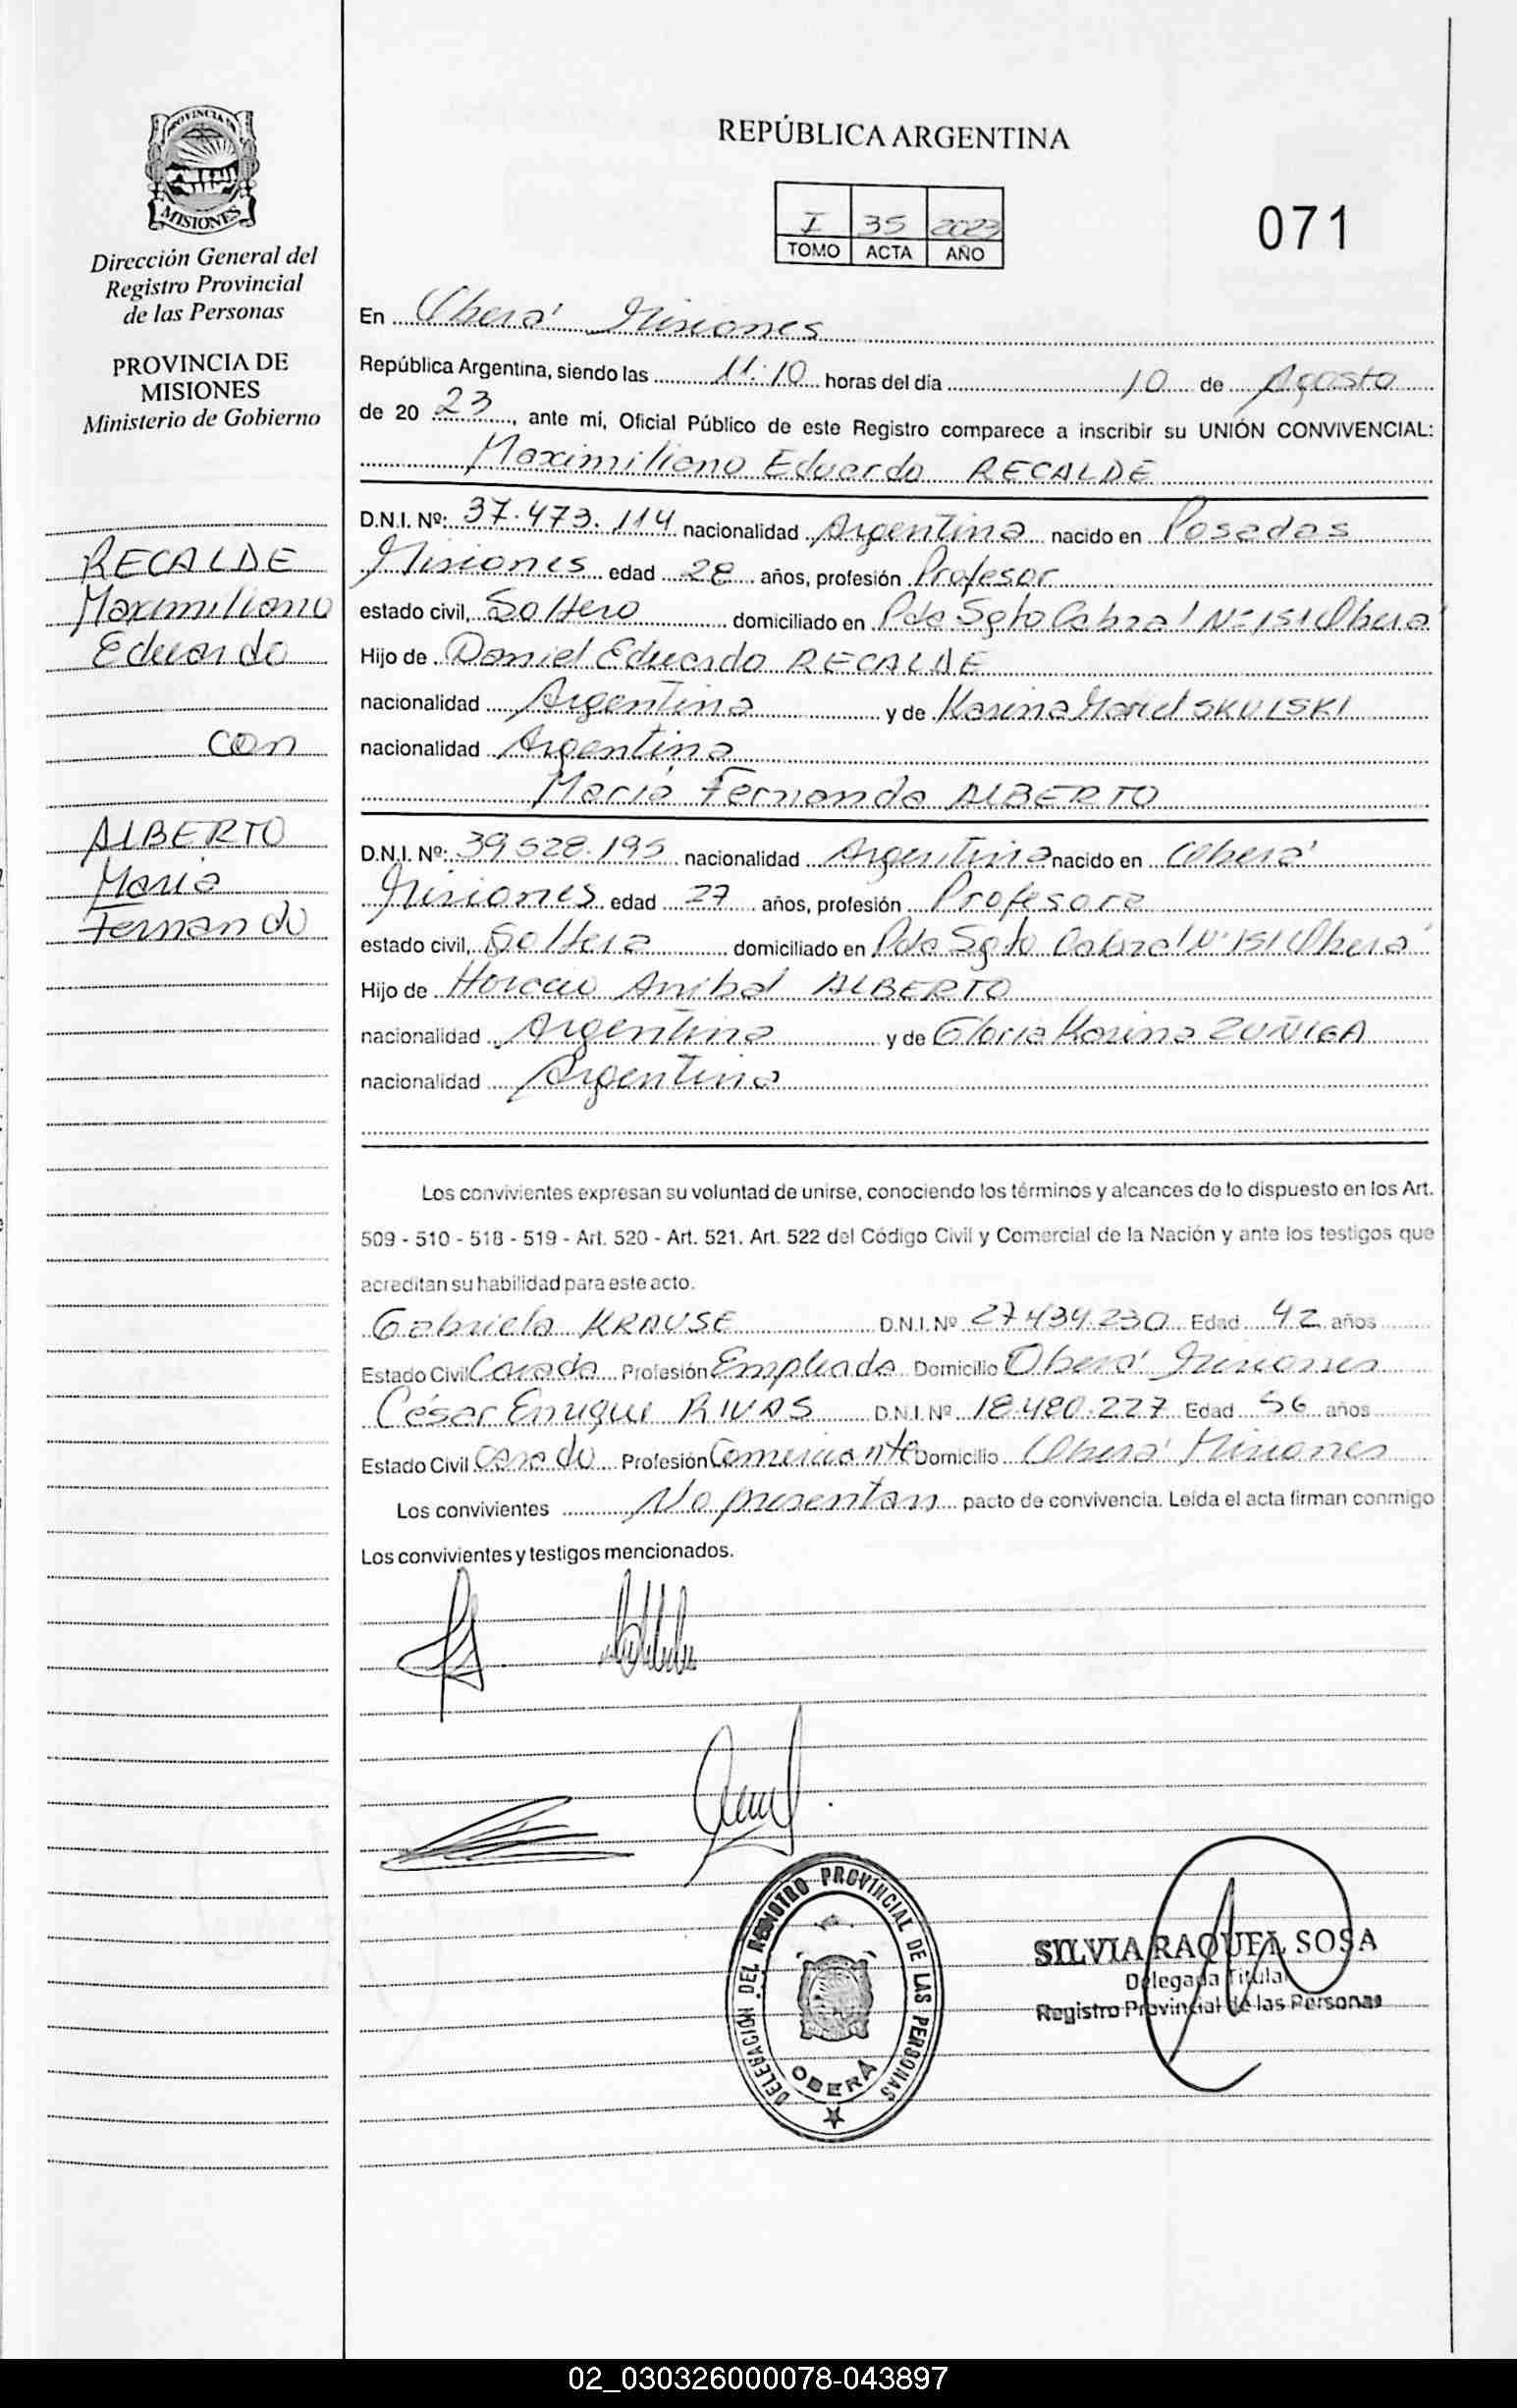 PROVINCIA DE
MISIONES
Dirección General del
Registro Provincial
de las Personas
PROVINCIA DE
MISIONES
Ministerio de Gobierno
RECALDE
Maximiliano
Eduardo
con
ALBERTO
Maria
Fernanda
REPÚBLICA ARGENTINA
I 35 2023
TOMO ACTA AÑO
071
En Oberá Misiones
República Argentina, siendo las 11:10 horas del día 10 de Agosto
de 20 23, ante mí, Oficial Público de este Registro comparece a inscribir su UNIÓN CONVIVENCIAL:
Maximiliano Eduardo RECALDE
D.N.I. Nº: 37.473.114 nacionalidad Argentina nacido en Posadas
Misiones edad 28 años, profesión Profesor
estado civil, Soltero domiciliado en Pde Sgto Cabral Nº 151 Oberá
Hijo de Daniel Eduardo RECALDE
nacionalidad Argentina y de Karina Mariel SKULSKI
nacionalidad Argentina
María Fernanda ALBERTO
D.N.I. Nº: 39.528.195 nacionalidad Argentina nacido en Oberá
Misiones edad 27 años, profesión Profesora
estado civil, Soltera domiciliado en Pde Sgto Cabral Nº 151 Oberá
Hijo de Horacio Anibal ALBERTO
nacionalidad Argentina y de Gloria Karina ZUÑIGA
nacionalidad Argentina
Los convivientes expresan su voluntad de unirse, conociendo los términos y alcances de lo dispuesto en los Art.
509 - 510 - 518 - 519 - Art. 520 - Art. 521. Art. 522 del Código Civil y Comercial de la Nación y ante los testigos que
acreditan su habilidad para este acto.
Gabriela KRAUSE D.N.I. Nº 27.434.230 Edad 42 años
Estado Civil Casada Profesión Empleada Domicilio Oberá Misiones
César Enrique RIVAS D.N.I. Nº 18.480.227 Edad 56 años
Estado Civil Casado Profesión Comerciante Domicilio Oberá Misiones
Los convivientes No presentan pacto de convivencia. Leída el acta firman conmigo
Los convivientes y testigos mencionados.
DELEGACION DEL REGISTRO PROVINCIAL DE LAS PERSONAS
OBERÁ
SILVIA RAQUEL SOSA
Delegada Titular
Registro Provincial de las Personas
02_030326000078-043897